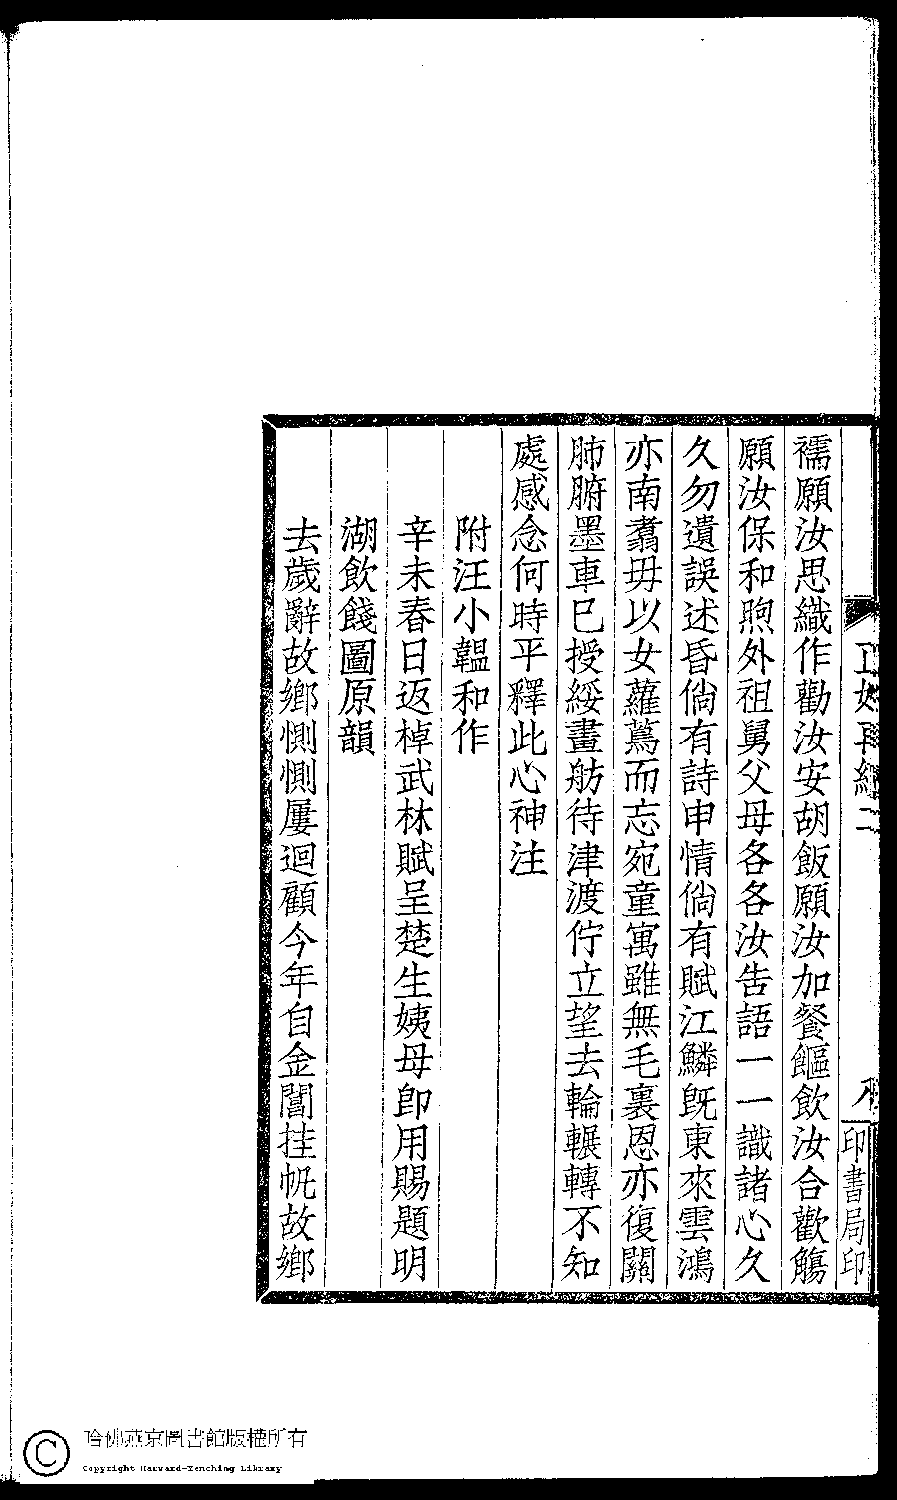 襦願汝思織作勸汝安胡飯願汝加餐饇飲汝合歡觴
願汝保和煦外祖舅父母各各汝告語一一識諸心久
久勿遺誤述昏倘有詩申情倘有賦江鱗旣東來雲鴻
亦南翥毋以女蘿蔦而忘宛童寓雖無毛裏恩亦復關
肺腑墨車巳授綏畫舫待津渡佇立望去輪輾轉不知
處感念何時平釋此心神注
附汪小韞和作
辛未春日返棹武林賦呈楚生姨母卽用賜題明
湖飲餞圖原韻
去歲辭故鄉惻惻屢迴顧今年自金閶挂帆故鄉
印書局印
哈佛燕京圖書館版權所有
Copyright Harvard-Yenching Library